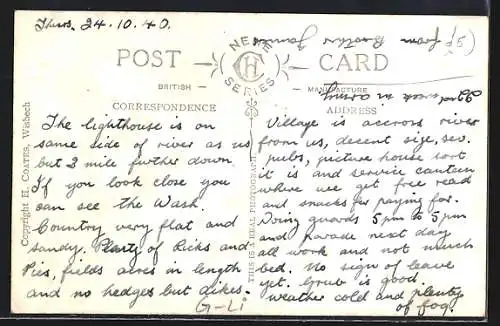 Thurs. 24.10.40.
(9) from Brother James
22nd week in army
POST CARD
NENE SERIES
CH
BRITISH MANUFACTURE
CORRESPONDENCE
ADDRESS
Copyright H. COATES, Wisbech
THIS IS A REAL PHOTOGRAPH
The lighthouse is on
same side of river as us
but 2 mile further down.
If you look close you
can see the Wash.
Country very flat and
sandy. Plenty of Ricks and
Pies, fields acres in length
and no hedges but dikes.
G-Li
Village is accross river
from us, decent size, sev.
pubs, picture house sort
it is and service canteen
where we get free read
and snacks for paying for.
Doing guards 5pm to 5pm
and Parade next day
all work and not much
bed. No sign of leave
yet. Grub is good.
weather cold and plenty
of fog.